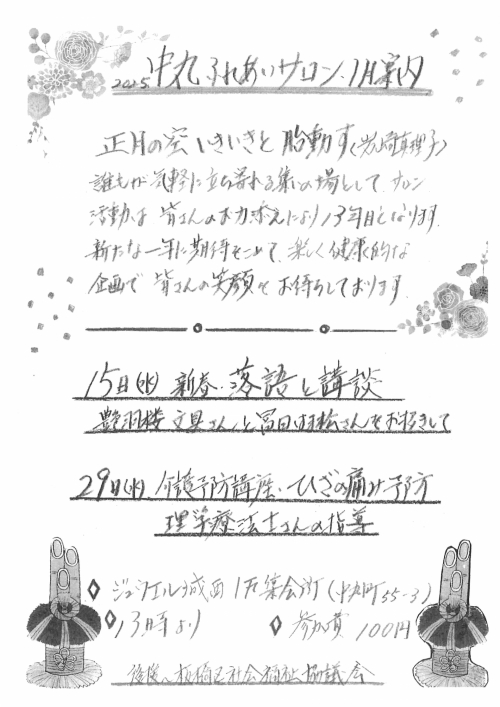 2025 中丸ふれあいサロン・1月案内
正月の空 いきいきと 胎動す〈岩崎眞理子〉
誰もが気軽に立ち寄れる集いの場として、サロン
活動は 皆さんのお力添えにより13年目となります。
新たな一年に期待をこめて、楽しく健康的な
企画で 皆さんの笑顔を お待ちしております。
15日(水) 新春・落語と講談
艶羽楼 文具さん、と冨田 さんをお招きして
29日(水) 介護予防講座・ひざの痛み予防
理学療法士さんの指導
◇ ジュウエル城西 1F集会所(中丸町55-3)
◇13時より ◇ 参加費 100円
後援〜板橋区社会福祉協議会